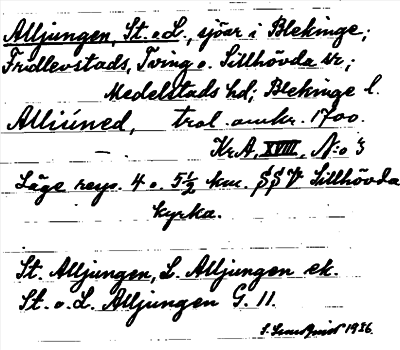 Alljungen, St. o. L., sjöar i Blekinge;
Fridlevstads, Tving o. Sillhövda sr;
Medelstads hd; Blekinge l.
Alliúned, trol. omkr. 1700.
KrA, XVIII, N:o 3
Läge resp. 4 o. 5½ km. SSV Sillhövda
kyrka.
St. Alljungen, L. Alljungen ek.
St. o. L. Alljungen G. 11.
1936.